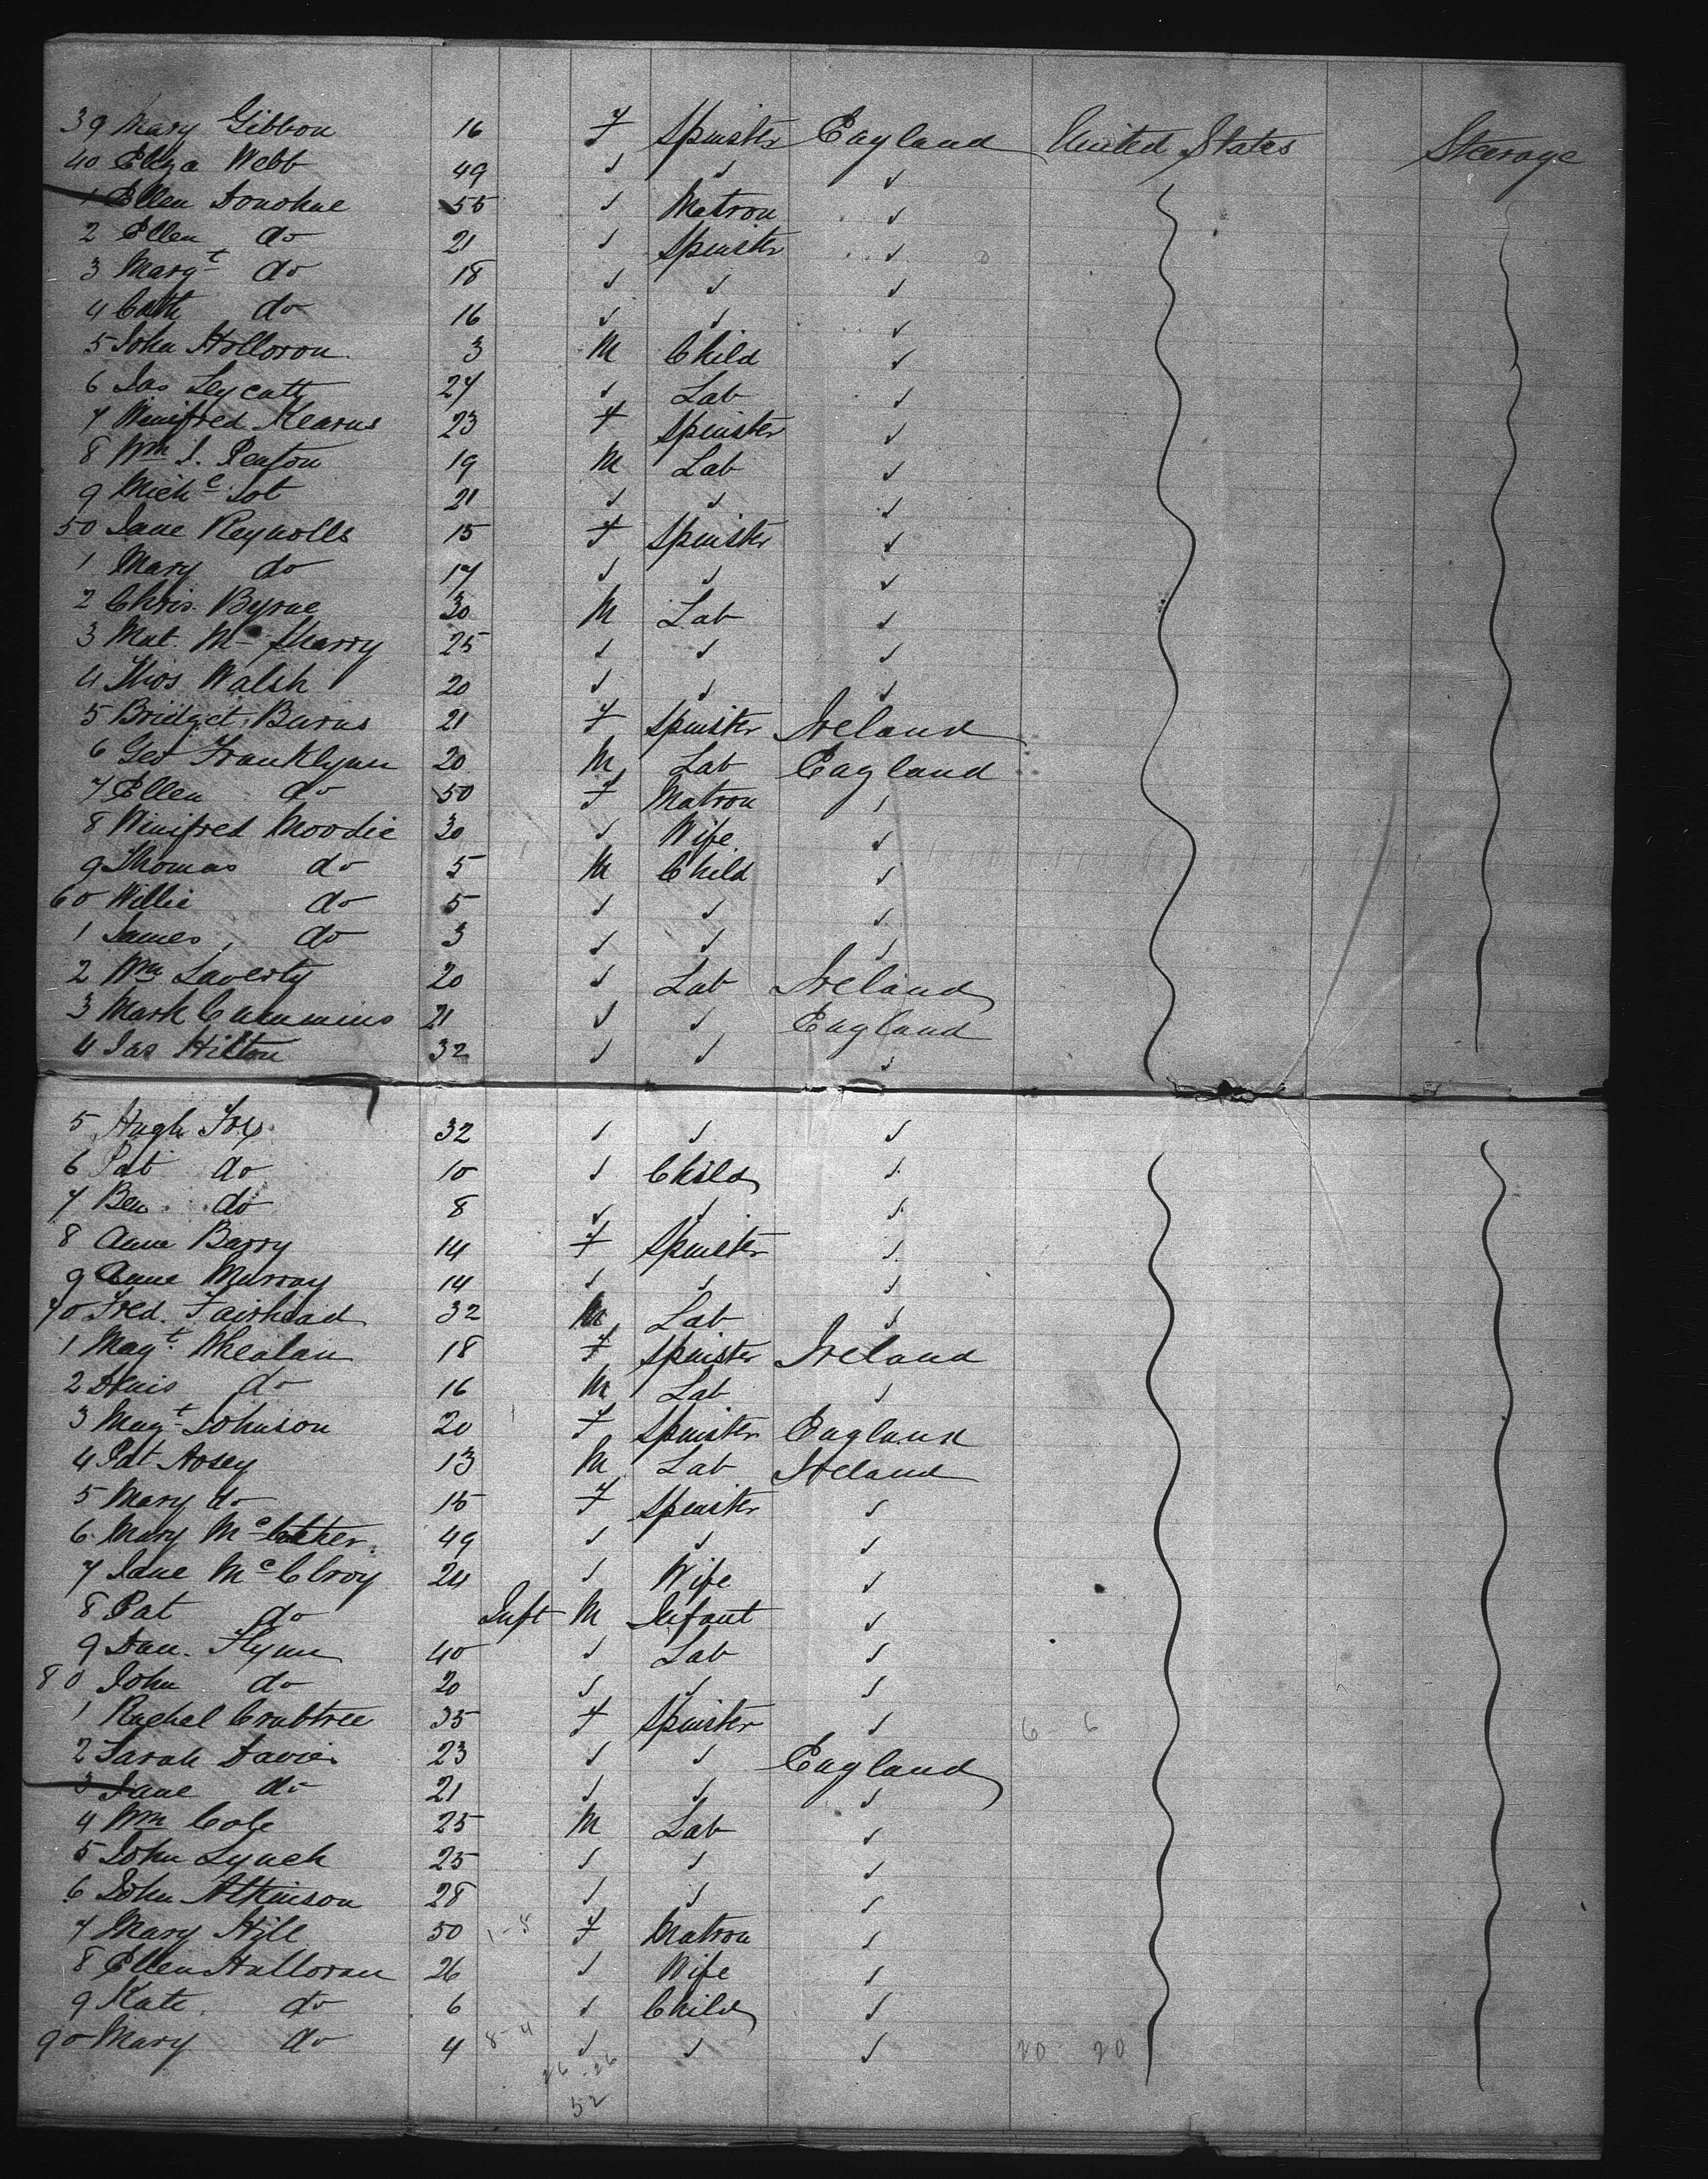 39 Mary Gibbon 16 F Spinster England United States Steerage
40 Eliza Webb 49 " " "
1 Ellen Donohue 55 " Matron "
2 Ellen do 21 " Spinster "
3 Margt do 18 " " "
4 Cath do 16 " " "
5 John Holloron 3 M Child "
6 Jas 24 " Lab "
7 Winifred Kearns 23 F Spinster "
8 Wm J. Penton 19 M Lab "
9 Miche 21 " " "
50 Jane Reynolls 15 F Spinster "
1 Mary do 17 " " "
2 Chris. Byrne 30 M Lab "
3 Mat. Mc Sharry 25 " " "
4 Thos Walsh 20 " " "
5 Bridget Burns 21 F Spinster Ireland
6 Geo Franklynn 20 M Lab England
7 Ellen do 50 F Matron "
8 Winifred Moodie 30 " Wife "
9 Thomas do 5 M Child "
60 Willie do 5 " " "
1 James do 3 " " "
2 Wm Laverty 20 " Lab Ireland
3 Mark Cummins 21 " " England
4 Jas Hilton 32 " " "
5 Hugh Foy 32 " " "
6 Pat do 10 " Child "
7 Ben do 8 " " "
8 Anne Barry 14 F Spinster "
9 Anne Murray 14 " " "
70 Fred. Fairhead 32 M Lab "
1 Magt Whealan 18 F Spinster Ireland
2 Denis do 16 M Lab "
3 Magt Johnson 20 F Spinster England
4 Pat 13 M Lab Ireland
5 Mary do 15 F Spinster "
6 Mary 49 " " "
7 Jane McElroy 24 " Wife "
8 Pat do Inft M Infant "
9 Dan. Flynn 40 " Lab "
80 John do 20 " " "
1 Rachel Crabtree 35 F Spinster " 6 6
2 Sarah Davies 23 " " England
3 Jane do 21 " " "
4 Wm Cole 25 M Lab "
5 John Lynch 25 " " "
6 John Atkinson 28 " " "
7 Mary Hill 50 F Matron "
8 Ellen Halloran 26 " Wife "
9 Kate. do 6 " Child "
90 Mary do 4 8-4 " " " 20 20
26 - 26
52